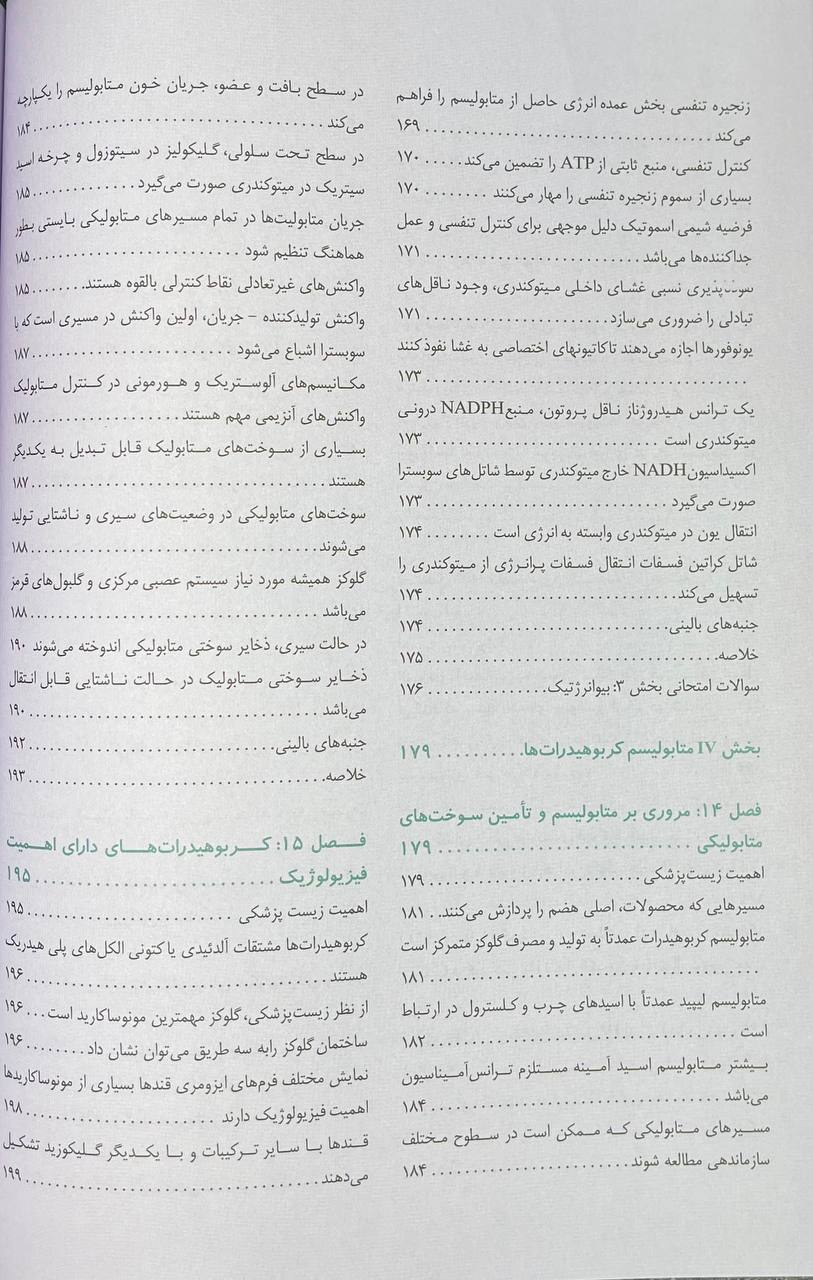 زنجیره تنفسی بخش عمده انرژی حاصل از متابولیسم را فراهم
می‌کند . . . . . . . . . . . . . . . . . . . . . . . . . . . . . . . . . . . ۱۶۹
کنترل تنفسی، منبع ثابتی از ATP را تضمین می‌کند. . . . . . ۱۷۰
بسیاری از سموم زنجیره تنفسی را مهار می‌کنند . . . . . . . . ۱۷۰
فرضیه شیمی اسموتیک دلیل موجهی برای کنترل تنفسی و عمل
جداکننده‌ها می‌باشد . . . . . . . . . . . . . . . . . . . . . . . . . ۱۷۱
نسبی غشای داخلی میتوکندری، وجود ناقل‌های
تبادلی را ضروری می‌سازد. . . . . . . . . . . . . . . . . . . . . . ۱۷۱
یونوفورها اجازه می‌دهند تاکاتیونهای اختصاصی به غشا نفوذ کنند
. . . . . . . . . . . . . . . . . . . . . . . . . . . . . . . . . . . . . . ۱۷۳
یک ترانس هیدروژناز ناقل پروتون، منبع NADPH درونی
میتوکندری است . . . . . . . . . . . . . . . . . . . . . . . . . . . ۱۷۳
اکسیداسیون NADH خارج میتوکندری توسط شاتل‌های سوبسترا
صورت می‌گیرد . . . . . . . . . . . . . . . . . . . . . . . . . . . . ۱۷۳
انتقال یون در میتوکندری وابسته به انرژی است . . . . . . . . ۱۷۴
شاتل کراتین فسفات انتقال فسفات پرانرژی از میتوکندری را
تسهیل می‌کند. . . . . . . . . . . . . . . . . . . . . . . . . . . . . ۱۷۴
جنبه‌های بالینی. . . . . . . . . . . . . . . . . . . . . . . . . . . . ۱۷۴
خلاصه. . . . . . . . . . . . . . . . . . . . . . . . . . . . . . . . . . ۱۷۵
سوالات امتحانی بخش ۳: بیوانرژتیک. . . . . . . . . . . . . . . ۱۷۶
بخش IV متابولیسم کربوهیدرات‌ها. . . . . . . . . . . ۱۷۹
فصل ۱۴: مروری بر متابولیسم و تأمین سوخت‌های
متابولیکی . . . . . . . . . . . . . . . . . . . . . . . . . . . ۱۷۹
اهمیت زیست‌پزشکی . . . . . . . . . . . . . . . . . . . . . . . . ۱۷۹
مسیرهایی که محصولات، اصلی هضم را پردازش می‌کنند. . . ۱۸۱
متابولیسم کربوهیدرات عمدتاً به تولید و مصرف گلوکز متمرکز است
. . . . . . . . . . . . . . . . . . . . . . . . . . . . . . . . . . . . . . ۱۸۱
متابولیسم لیپید عمدتاً با اسیدهای چرب و کلسترول در ارتباط
است . . . . . . . . . . . . . . . . . . . . . . . . . . . . . . . . . . . ۱۸۲
بیشتر متابولیسم اسید آمینه مستلزم ترانس‌آمیناسیون
می‌باشد . . . . . . . . . . . . . . . . . . . . . . . . . . . . . . . . . ۱۸۴
مسیرهای متابولیکی که ممکن است در سطوح مختلف
سازماندهی مطالعه شوند . . . . . . . . . . . . . . . . . . . . . . ۱۸۴
در سطح بافت و عضو، جریان خون متابولیسم را یکپارچه
می‌کند . . . . . . . . . . . . . . . . . . . . . . . . . . . . . . . . . . ۱۸۴
در سطح تحت سلولی، گلیکولیز در سیتوزول و چرخه اسید
سیتریک در میتوکندری صورت می‌گیرد . . . . . . . . . . . . . ۱۸۵
جریان متابولیت‌ها در تمام مسیرهای متابولیکی بایستی بطور
هماهنگ تنظیم شود . . . . . . . . . . . . . . . . . . . . . . . . ۱۸۵
واکنش‌های غیرتعادلی نقاط کنترلی بالقوه هستند. . . . . . . . ۱۸۵
واکنش تولیدکننده – جریان، اولین واکنش در مسیری است که با
سوبسترا اشباع می‌شود . . . . . . . . . . . . . . . . . . . . . . . ۱۸۷
مکانیسم‌های آلوستریک و هورمونی در کنترل متابولیک
واکنش‌های آنزیمی مهم هستند . . . . . . . . . . . . . . . . . . ۱۸۷
بسیاری از سوخت‌های متابولیک قابل تبدیل به یکدیگر
هستند . . . . . . . . . . . . . . . . . . . . . . . . . . . . . . . . . . ۱۸۷
سوخت‌های متابولیکی در وضعیت‌های سیری و ناشتایی تولید
می‌شوند . . . . . . . . . . . . . . . . . . . . . . . . . . . . . . . . . ۱۸۸
گلوکز همیشه مورد نیاز سیستم عصبی مرکزی و گلبول‌های قرمز
می‌باشد . . . . . . . . . . . . . . . . . . . . . . . . . . . . . . . . . ۱۸۸
در حالت سیری، ذخایر سوختی متابولیکی اندوخته می‌شوند ۱۹۰
ذخایر سوختی متابولیک در حالت ناشتایی قابل انتقال
می‌باشد . . . . . . . . . . . . . . . . . . . . . . . . . . . . . . . . . ۱۹۰
جنبه‌های بالینی. . . . . . . . . . . . . . . . . . . . . . . . . . . . ۱۹۲
خلاصه. . . . . . . . . . . . . . . . . . . . . . . . . . . . . . . . . . ۱۹۳
فصل ۱۵: کربوهیدرات‌های دارای اهمیت
فیزیولوژیک . . . . . . . . . . . . . . . . . . . . . . . . . ۱۹۵
اهمیت زیست پزشکی . . . . . . . . . . . . . . . . . . . . . . . ۱۹۵
کربوهیدرات‌ها مشتقات آلدئیدی یا کتونی الکل‌های پلی هیدریک
هستند . . . . . . . . . . . . . . . . . . . . . . . . . . . . . . . . . . ۱۹۶
از نظر زیست‌پزشکی، گلوکز مهمترین مونوساکارید است . . . ۱۹۶
ساختمان گلوکز رابه سه طریق می‌توان نشان داد . . . . . . . . ۱۹۶
نمایش مختلف فرم‌های ایزومری قندها بسیاری از مونوساکاریدها
اهمیت فیزیولوژیک دارند . . . . . . . . . . . . . . . . . . . . . ۱۹۸
قندها با سایر ترکیبات و با یکدیگر گلیکوزید تشکیل
می‌دهند . . . . . . . . . . . . . . . . . . . . . . . . . . . . . . . . . ۱۹۹